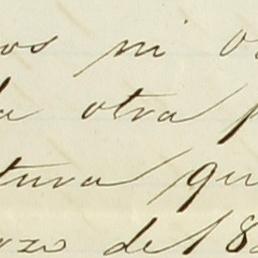 os ni o
a otra p
tura qu
rzo de 18